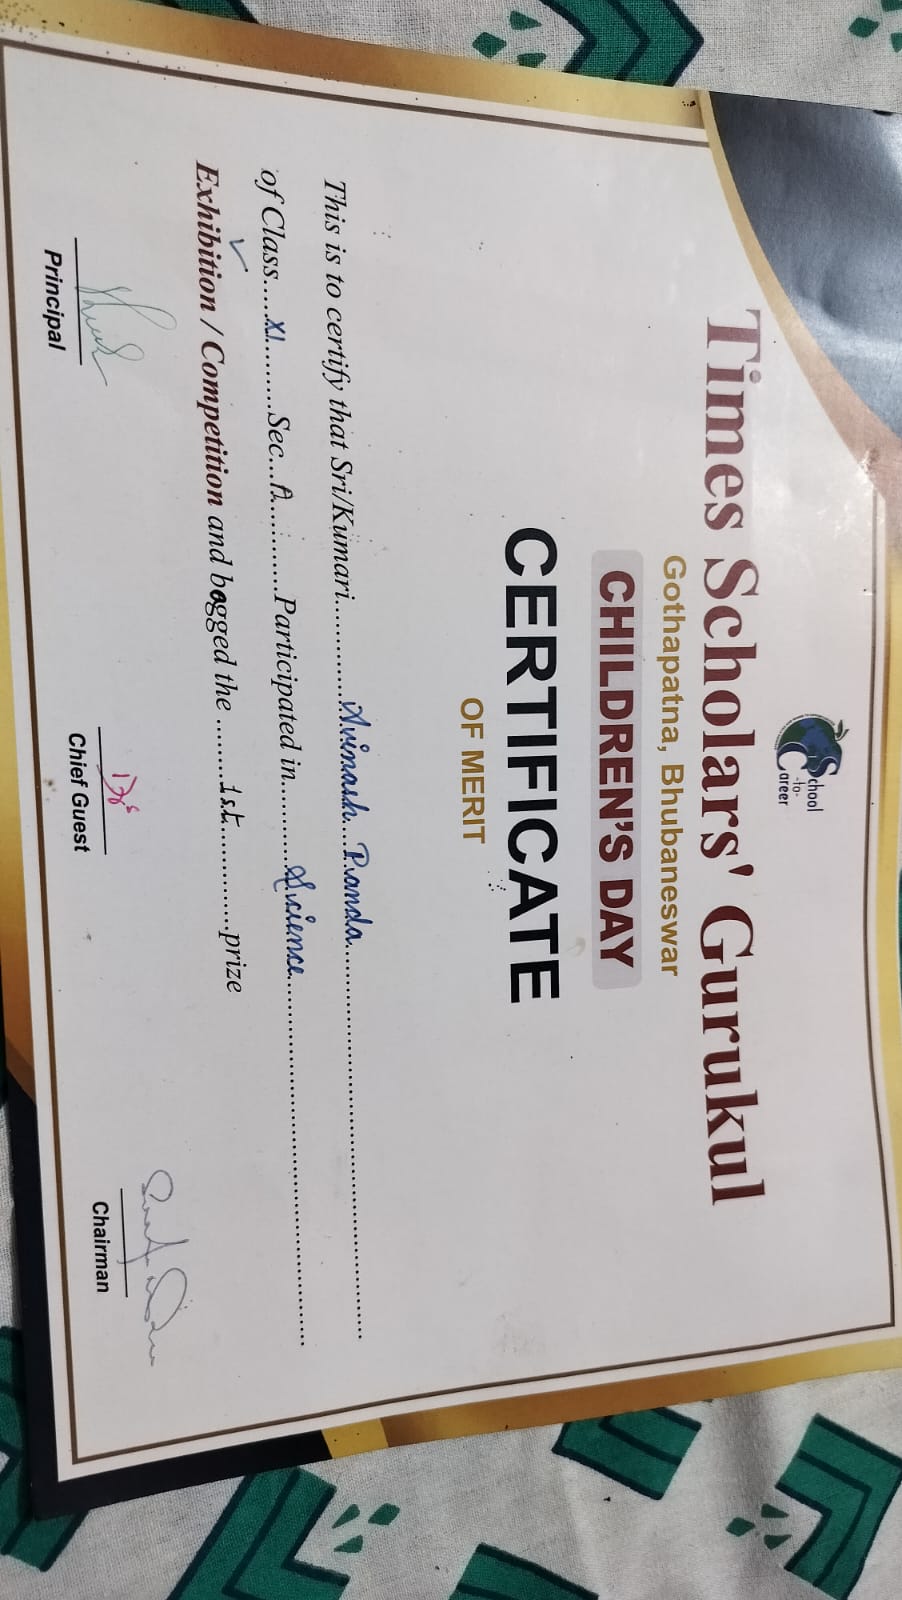 School
-to-
Career
Times Scholars' Gurukul
Gothapatna, Bhubaneswar
CHILDREN'S DAY
CERTIFICATE
OF MERIT
This is to certify that Sri/Kumari.............Avinash....Panda................................................
of Class.....XI.........Sec...A............Participated in...........Science...............................................
Exhibition / Competition and bagged the .........1st...............prize
Principal
Chief Guest
Chairman